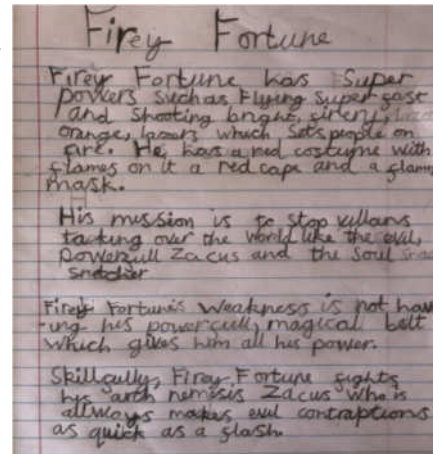 Firey Fortune
Firey Fortune has Super
powers such as Flying super fast
and shooting bright, firery,
orange, lasors which sets people on
fire. He has a red costume with
flames on it a red cape and a flame
mask.
His mission is to stop villans
tacking over the world like the evil,
powerfull Zacus and the Soul
snatcher
Firey Fortunis weakness is not hav
-ing his powerfull, magical belt
which gives him all his power.
Skillfully, Firey Fortune fights
his arth nemisis Zacus who is
allways makes evil contraptions
as quick as a flash.